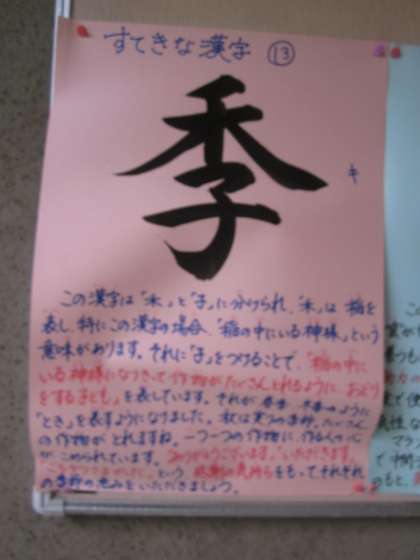 すてきな漢字 ⑬
季
キ
この漢字は「禾」と「子」に分けられ、「禾」は 稲を
表し、特にこの漢字の場合、「稲の中にいる神様」という
意味があります。それに「子」をつけることで、「稲の中に
いる神様になりきって作物がたくさんとれるように おどり
をする子ども」を表しています。それが 春季、冬季のように
「とき」を表すようになりました。秋は実りの季節、たくさん
の作物が とれますね。一つ一つの作物に、作る人の心
がこめられています。ありがとうございます。いただきます。
という 感謝の気持ちをもって、それぞれ
の季節の恵みをいただきましょう。